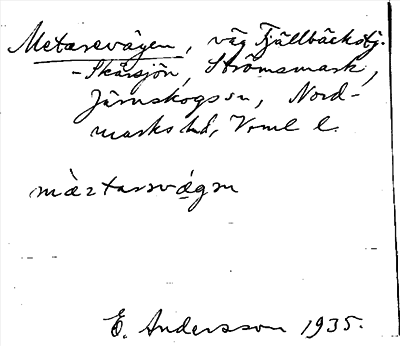 Metarevägen, väg Fjällbäckstj.
-Skårsjön, Strömsmark,
Järnskogs sn, Nord-
marks hd, Vrml l.
E. Andersson 1935.